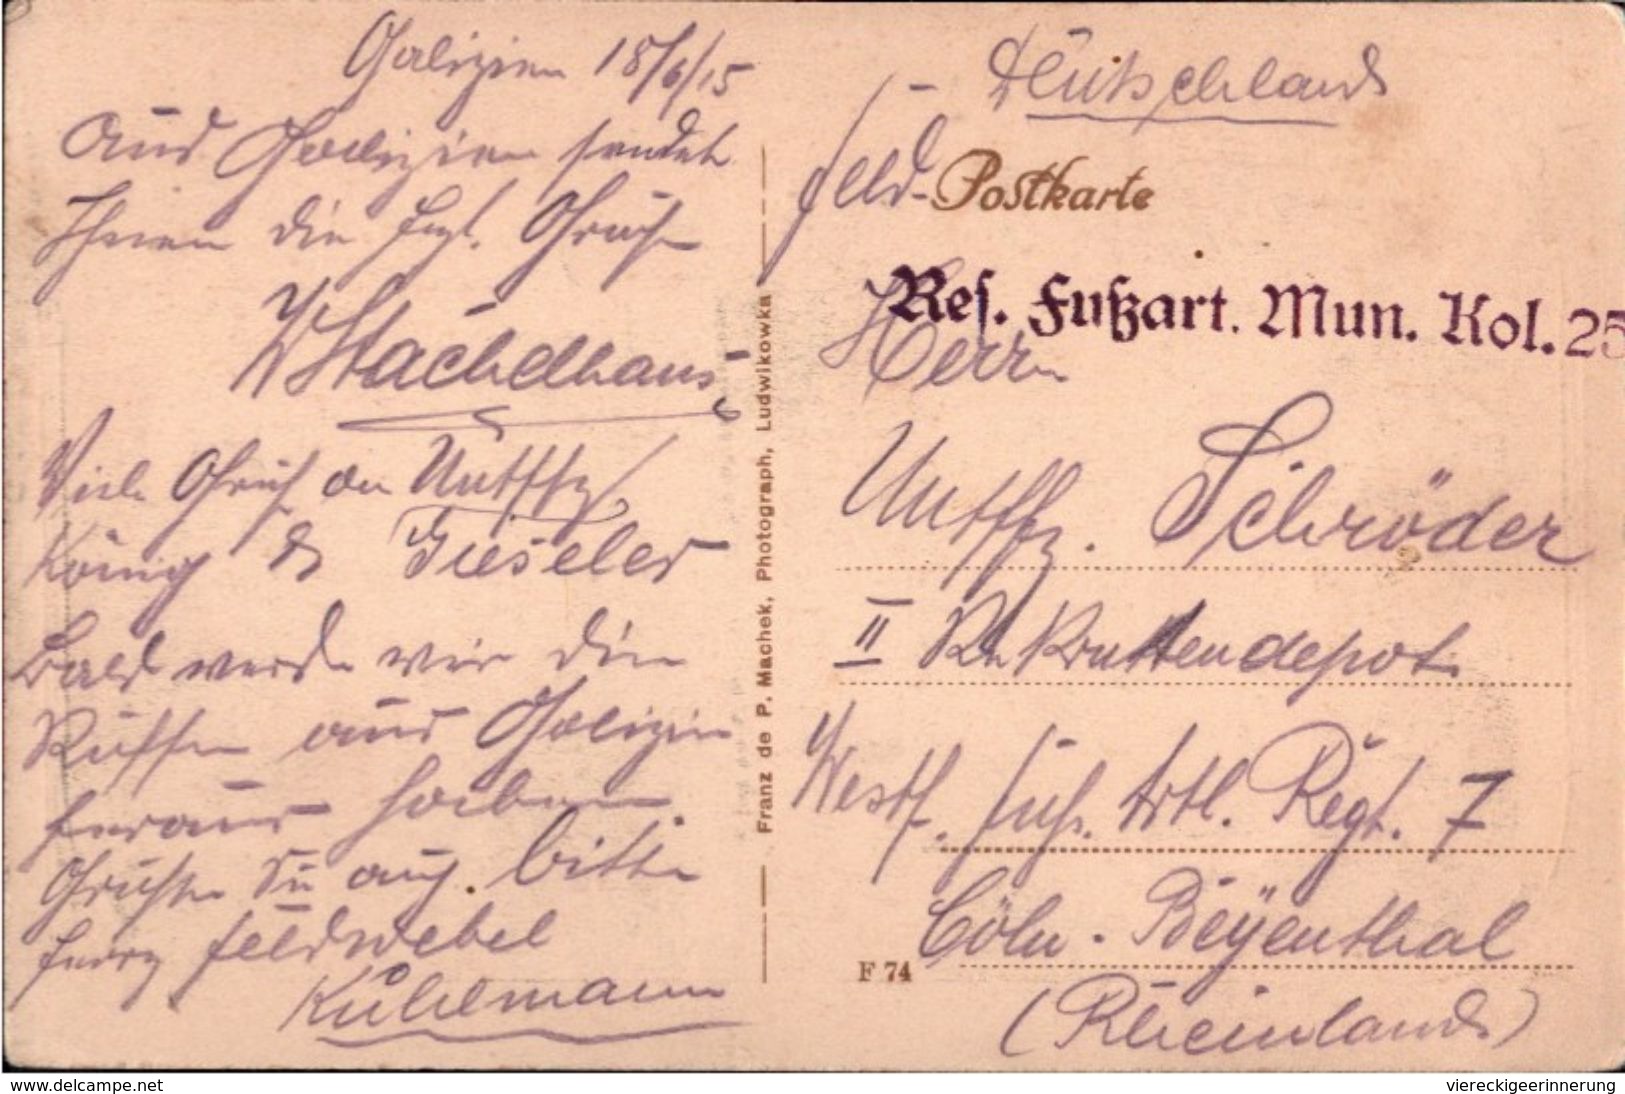 Galizien 18/6/15
Aus Galizien sendet
Ihnen die hrzl. Grüße
W Stachelhaus
Viele Grüße an Untffz.
König & Gieseler
Bald werden wir die
Russen aus Galizien
heraus haben.
Grüßen Sie auch bitte
Herrn Feldwebel
Kuhlmann
Franz de P. Machek, Photograph, Ludwikowka
Deutschland
Feld-Postkarte
Res. Fußart. Mun. Kol. 25
Herrn
Untffz. Schröder
II Rekrutendepot
Westf. Fuß. Artl. Regt. 7
Cöln-Beyenthal
F 74
(Rheinland)
www.delcampe.net
viereckigeerinnerung